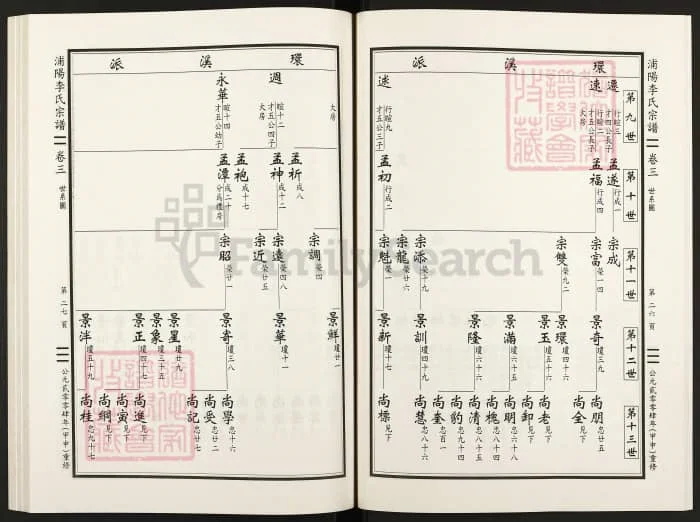 浦陽李氏宗譜
卷三
世系圖
第二六頁
公元貳零零肆年(甲申)重修
第九世
第十世
第十一世
第十二世
第十三世
環溪派
遷 行暄三 才四公長子
速 行暄二 才五公長子 大房
逑 行暄九 才五公三子
孟遂 行成一
孟福 行成四
孟初 行成二
宗成 榮一
宗富 榮一四
宗雙 榮九二
宗添 榮十九
宗龍 榮廿六
宗魁 榮一
景奇 瓊三九
景環 瓊四十六
景玉 瓊二
景滿 瓊六十六
景隆 瓊六十三
景訓 瓊四十九
景新 瓊十七
尚朋 忠廿五
尚全 見下
尚老 見下
尚卸 見下
尚明 忠六十八
尚槐 忠八十四
尚清 忠八十五
尚豹 忠九十四
尚奎 忠百一
尚慧 忠八十六
尚標 見下
環溪派
大房
週 暄十二 才五公四子 大房
永華 暄十四 才五公幼子
孟祈 成八
孟神 成十二
孟袍 成十七
孟潭 成二十 分爲禮房
宗調 榮四
宗遠 榮四八
宗近 榮廿五
宗昭 榮廿一
景鮮 瓊廿一
景華 瓊十一
景寄 瓊三八
景星 瓊廿九
景象 瓊三十五
景正 瓊四十七
景泮 瓊五十九
尚學 忠十六
尚受 忠廿二
尚記 忠四十二
尚進 見下
尚寅 見下
尚綱 見下
尚桂 忠九十七
浦陽李氏宗譜
卷三
世系圖
第二七頁
公元貳零零肆年(甲申)重修
FamilySearch